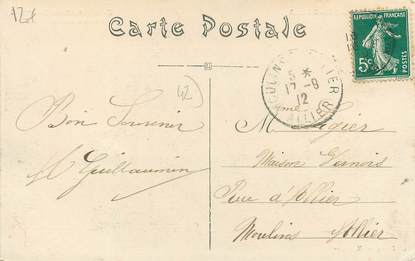 12f
Carte Postale
REPUBLIQUE FRANÇAISE
5c POSTES
5 *
17 - 8
12
ALLIER
(12)
Bon Souvenir
Guillaumin
Mme Légier
Maison Vernois
Rue d'Allier
Moulins Allier